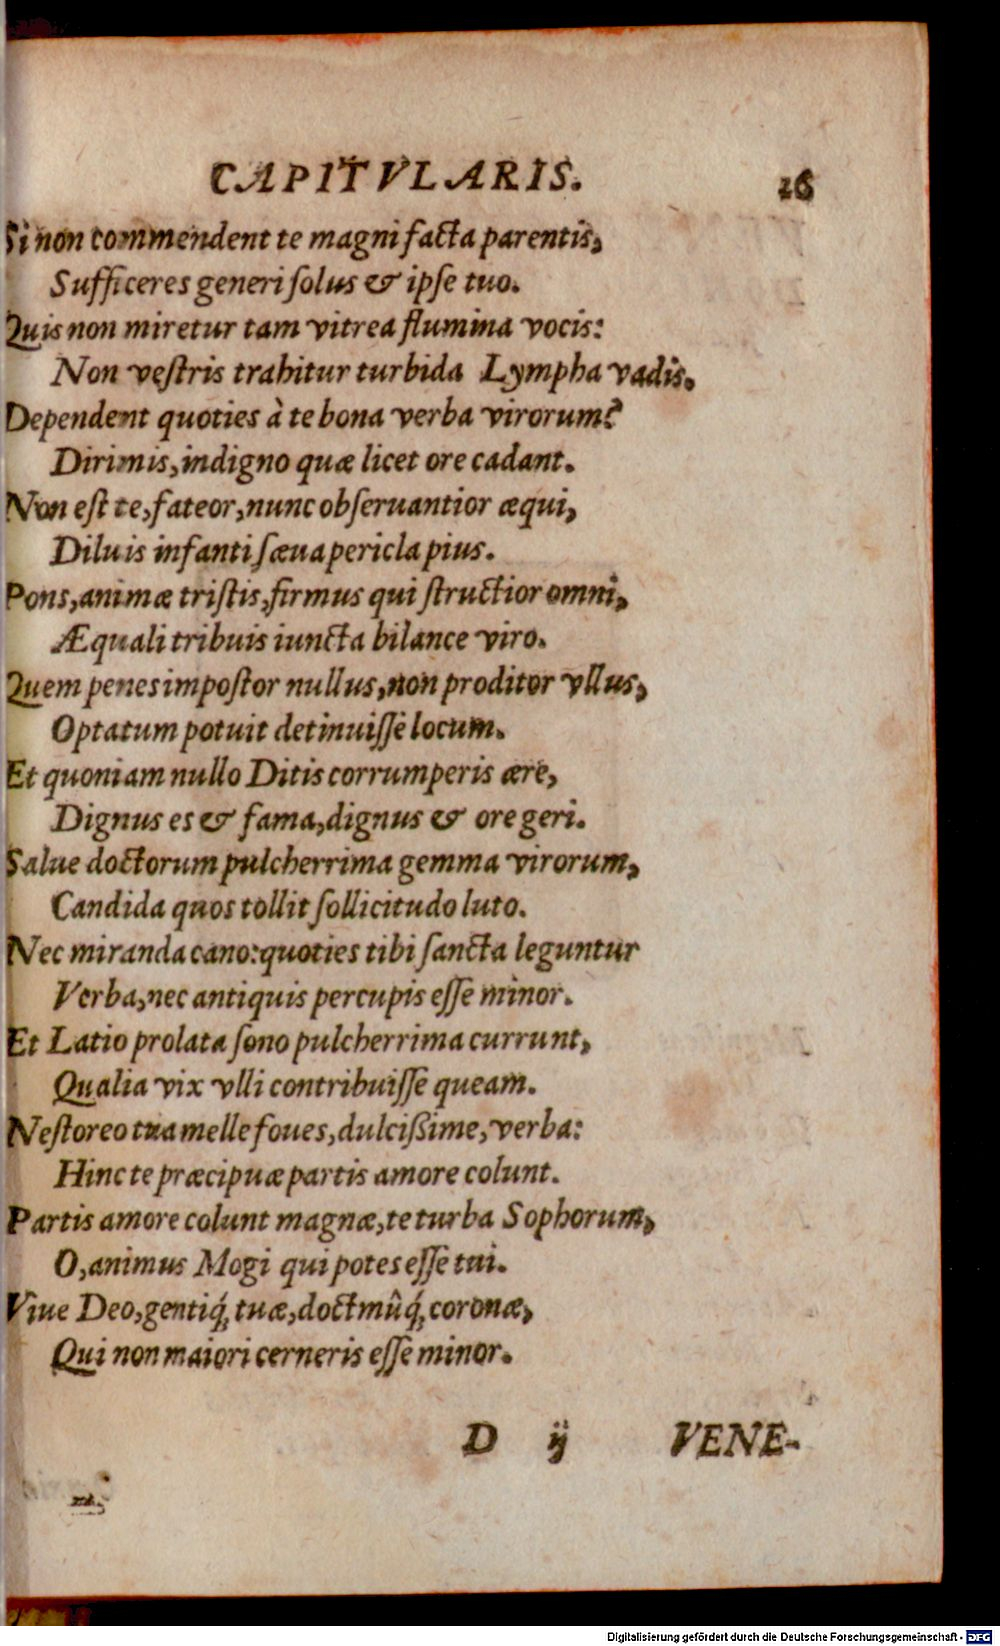 CAPITVLARIS. 26
Si non commendent te magni facta parentis,
Sufficeres generi ſolus & ipſe tuo.
Quis non miretur tam vitrea flumina vocis:
Non veſtris trahitur turbida Lympha vadis.
Dependent quoties à te bona verba virorum?
Dirimis, indigno quæ licet ore cadant.
Non eſt te, fateor, nunc obſeruantior æqui,
Diluis infanti ſæua pericla pius.
Pons, animæ triſtis, firmus qui ſtructior omni,
Æquali tribuis iuncta bilance viro.
Quem penes impoſtor nullus, non proditor vllus,
Optatum potuit detinuiſſe locum.
Et quoniam nullo Ditis corrumperis ære,
Dignus es & fama, dignus & ore geri.
Salue doctorum pulcherrima gemma virorum,
Candida quos tollit ſollicitudo luto.
Nec miranda cano: quoties tibi ſancta leguntur
Verba, nec antiquis percupis eſſe minor.
Et Latio prolata ſono pulcherrima currunt,
Qualia vix vlli contribuiſſe queam.
Neſtoreo tua melle foues, dulciſsime, verba:
Hinc te præcipuæ partis amore colunt.
Partis amore colunt magnæ, te turba Sophorum,
O, animus Mogi qui potes eſſe tui.
Viue Deo, gentiq́; tuæ, doctmûq́; coronæ,
Qui non maiori cerneris eſſe minor.
D ij VENE-
Digitalisierung gefördert durch die Deutsche Forschungsgemeinschaft - DFG